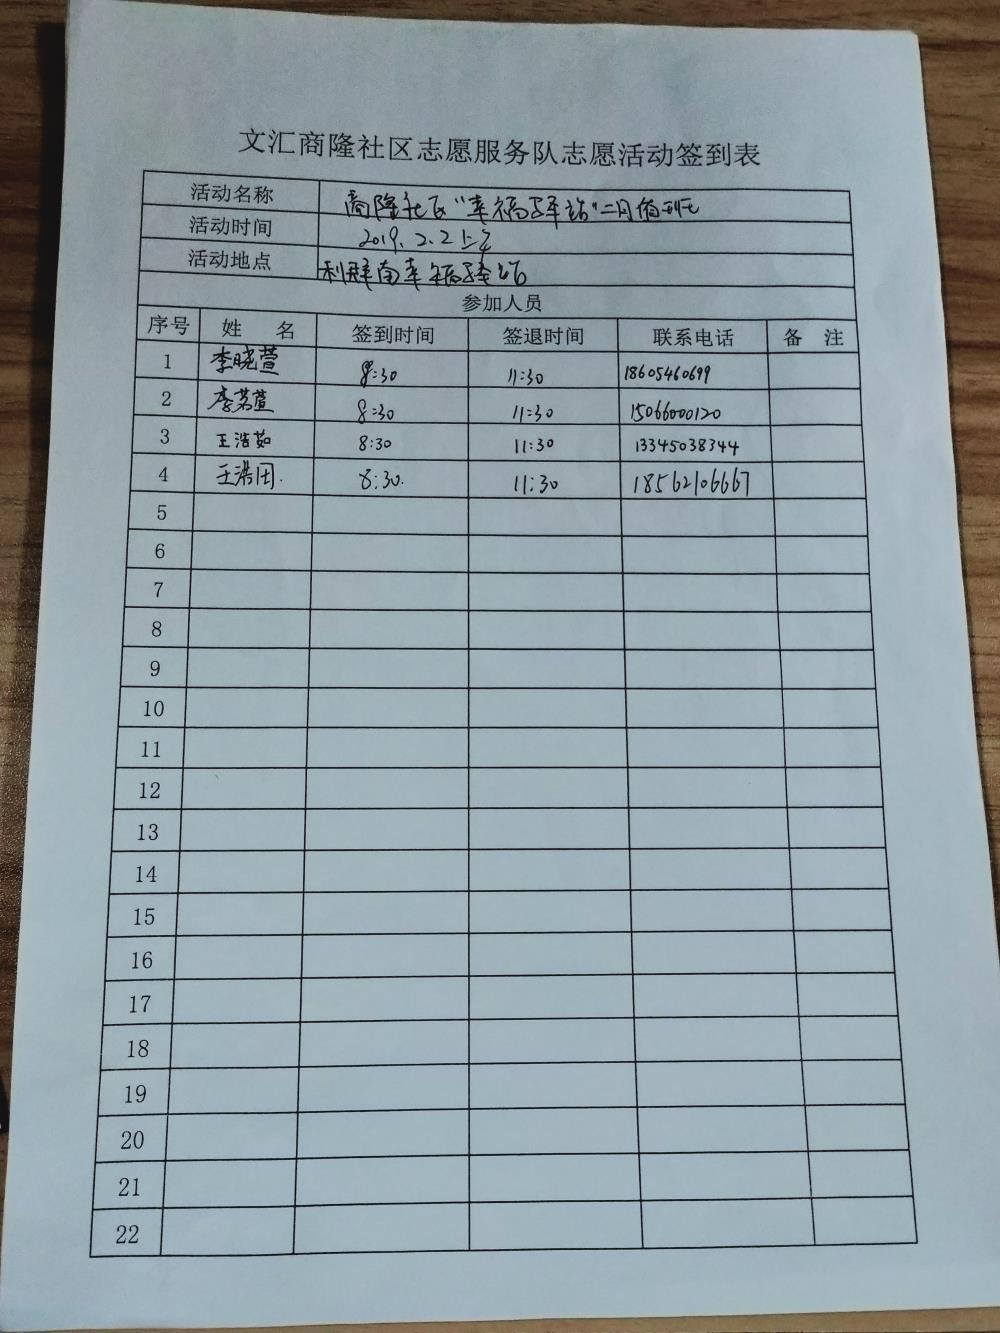 文汇商隆社区志愿服务队志愿活动签到表
活动名称 商隆社区“幸福驿站”二月值班
活动时间 2019.2.2上午
活动地点 利群南幸福驿站
参加人员
序号 姓 名 签到时间 签退时间 联系电话 备 注
1 李晓萱 8:30 11:30 18605460699
2 李茗萱 8:30 11:30 15066000120
3 王浩茹 8:30 11:30 13345038344
4 王 8:30. 11:30 18562106667
5
6
7
8
9
10
11
12
13
14
15
16
17
18
19
20
21
22